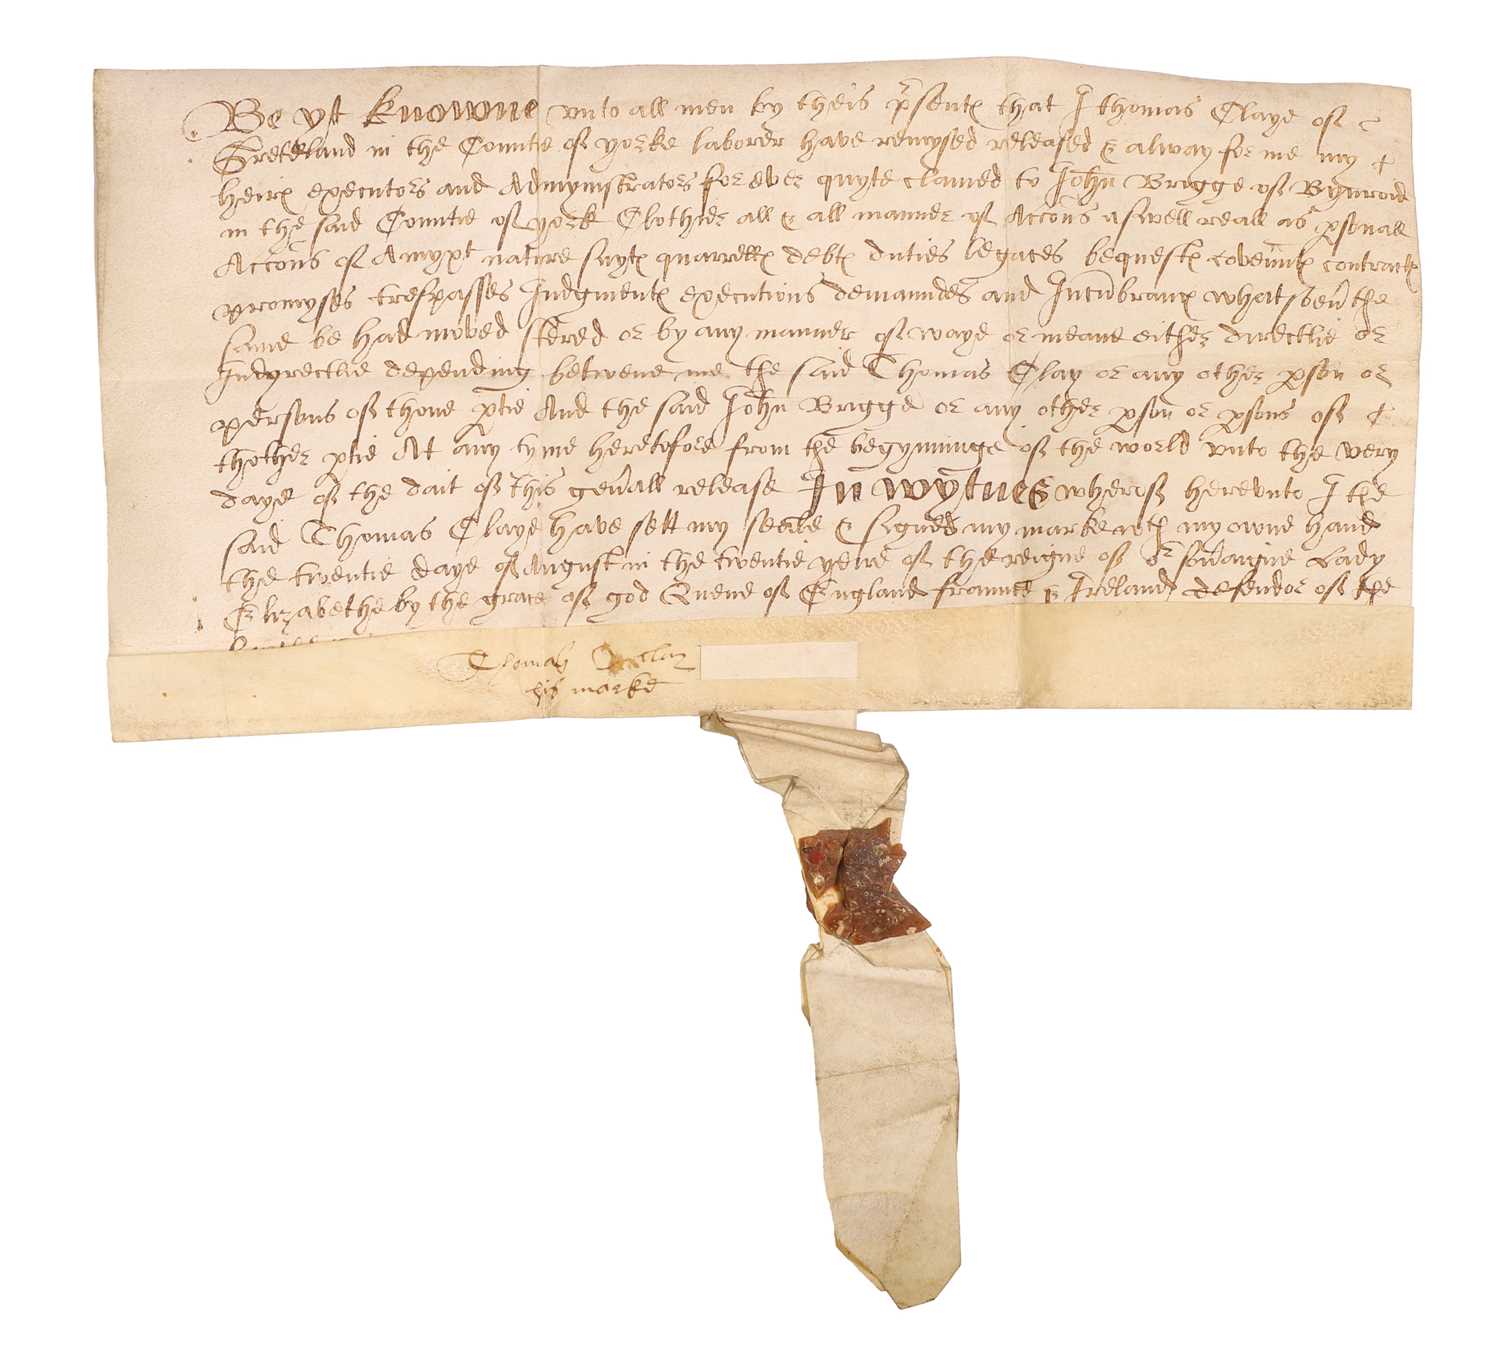 Be yt knowne unto all men by theis p̱sentꝭ that I Thomas Claye of
Greteland in the Countie of Yorke laborer have remysed released & alway for me my
heirꝭ executors and Admynistrators for ever quyte clamed to John Brigge of
in the said Countie of York Clothier all & all manner of Accons aswell reall as p̱sonall
Accons of nature suytꝭ quarrellꝭ debtꝭ duties legaces bequestꝭ covenntꝭ contractꝭ
promyses trespasses Judgmentꝭ executions demaundes and Incubrancꝭ whatsoev the
same be had moved stered or by any manner of waye or meane either directlie or
Indyrectlie depending betwene me the said Thomas Clay or any other p̱son or
persons of thone p̱tie And the said John Brigge or any other p̱son or p̱sons of
thother p̱tie At any tyme heretofore from the begynninge of the world unto the very
daye of the dait of this genall release In wytnes wherof herevnto I the
said Thomas Claye have sett my seale & signed my marke wth my owne hand
the twentie daye of August in the twentie yere of the reigne of or sovaigne Lady
Elizabethe by the grace of god Quene of England fraunce & Ireland defendor of the
Thomas Clay
his marke